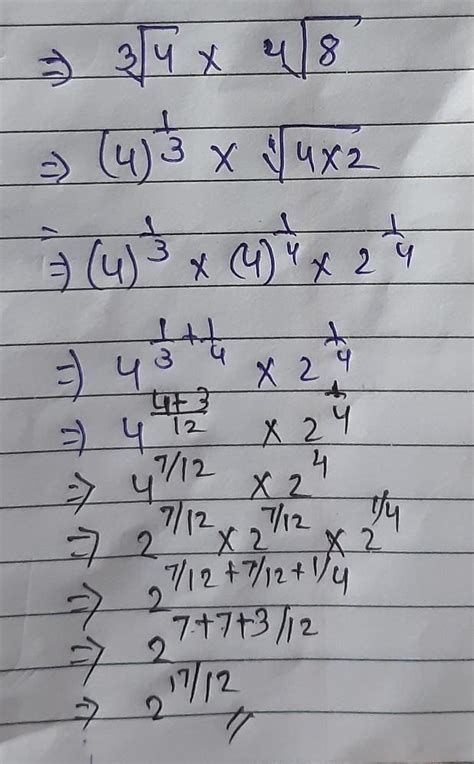 ⇒ ∛4 × ∜8
⇒ (4)^1/3 × ∜4×2
⇒ (4)^1/3 × (4)^1/4 × 2^1/4
⇒ 4^1/3+1/4 × 2^1/4
⇒ 4^4+3/12 × 2^1/4
⇒ 4^7/12 × 2^4
⇒ 2^7/12 × 2^7/12 × 2^1/4
⇒ 2^7/12+7/12+1/4
⇒ 2^7+7+3/12
⇒ 2^17/12 //